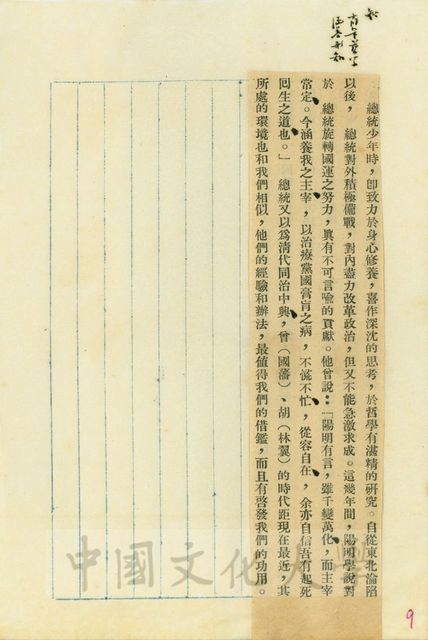 總統少年時，卽致力於身心修養，喜作深沈的思考，於哲學有湛精的研究。自從東北淪陷
以後，　總統對外積極備戰，對內盡力改革政治，但又不能急激求成。這幾年間，陽明學說對
於　總統旋轉國運之努力，眞有不可言喻的貢獻。他曾說：「陽明有言，雖千變萬化，而主宰
常定。今涵養我之主宰，以治療黨國膏肓之病，不慌不忙，從容自在，余亦自信吾有起死
囘生之道也。」　總統又以爲淸代同治中興，曾（國藩）、胡（林翼）的時代距現在最近，其
所處的環境也和我們相似，他們的經驗和辦法，最値得我們的借鑑，而且有啓發我們的功用。
中國文化大學
9